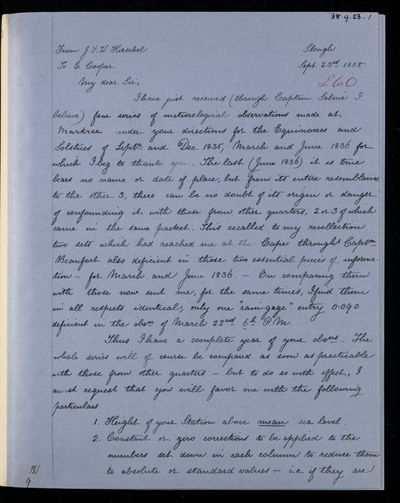 38.9.23.1
From J.F.W. Herschel
Slough
To E. Cooper
Sept. 23rd 1838
My dear Sir,
£60
I have just received (through Captain Sabine I
believe) four series of meteorological observations made at
Markree under your directions for the Equinoxes and
Solstices of Septr. and Dec. 1835, March and June 1836 for
which I beg to thank you. The last (June 1836) it is true
bears no name or date of place, but from its entire resemblance
to the other 3, there can be no doubt of its origin or danger
of confounding it with those from other quarters, 2 or 3 of which
came in the same packet. This recalled to my recollection
two sets which had reached me at the Cape through Captn.
Beaufort also deficient in those two essential pieces of informa-
tion - for March and June 1836 - On comparing them
with those now sent me, for the same times, I find them
in all respects identical, only one "rain-gage" entry 0.090
deficient in the obsns. of March 22nd 6h P.M.
Thus I have a complete year of your obsns. The
whole series will of course be compared as soon as practicable
with those from other quarters - but to do so with effect, I
must request that you will favor me with the following
particulars
1. Height of your Station above mean sea level.
2. Constant or zero corrections to be applied to the
numbers set down in each column to reduce them
to absolute or standard values - i.e. if they are
9